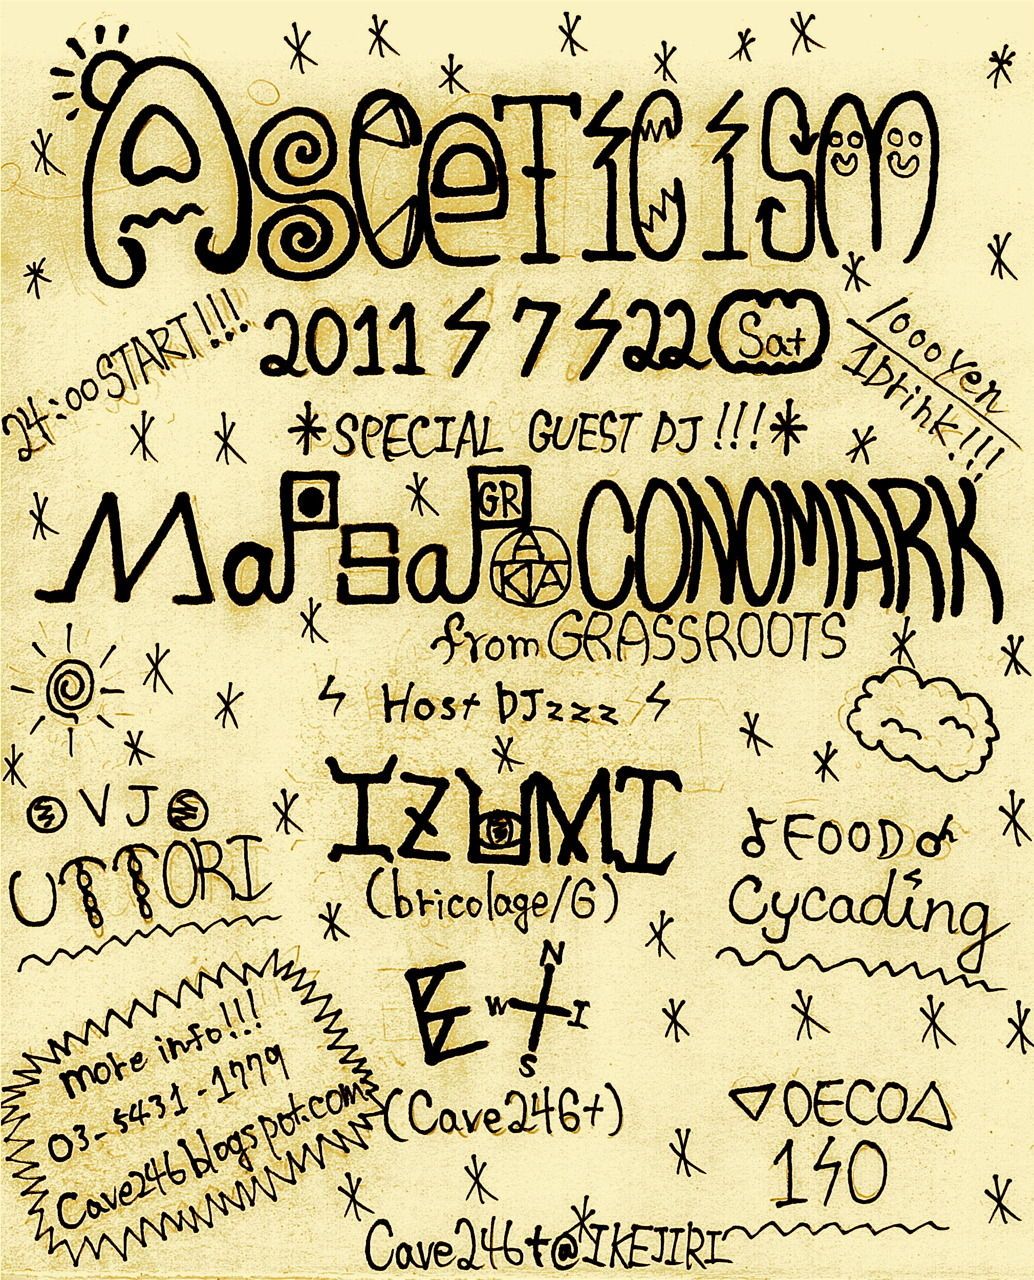 Asceticism
2011 7 22 Sat
24:00 START!!!
1000 Yen
1Drink!!!
*SPECIAL GUEST DJ!!!*
CONOMARK
from GRASSROOTS
Host DJzzz
IZUMI
(bricolage/G)
VJ
UTTORI
FOOD
Cycading
N
W I
S
(Cave246+)
more info!!!
03-5431-1779
Cave246blogspot.com
DECO
Cave246+@IKEJIRI